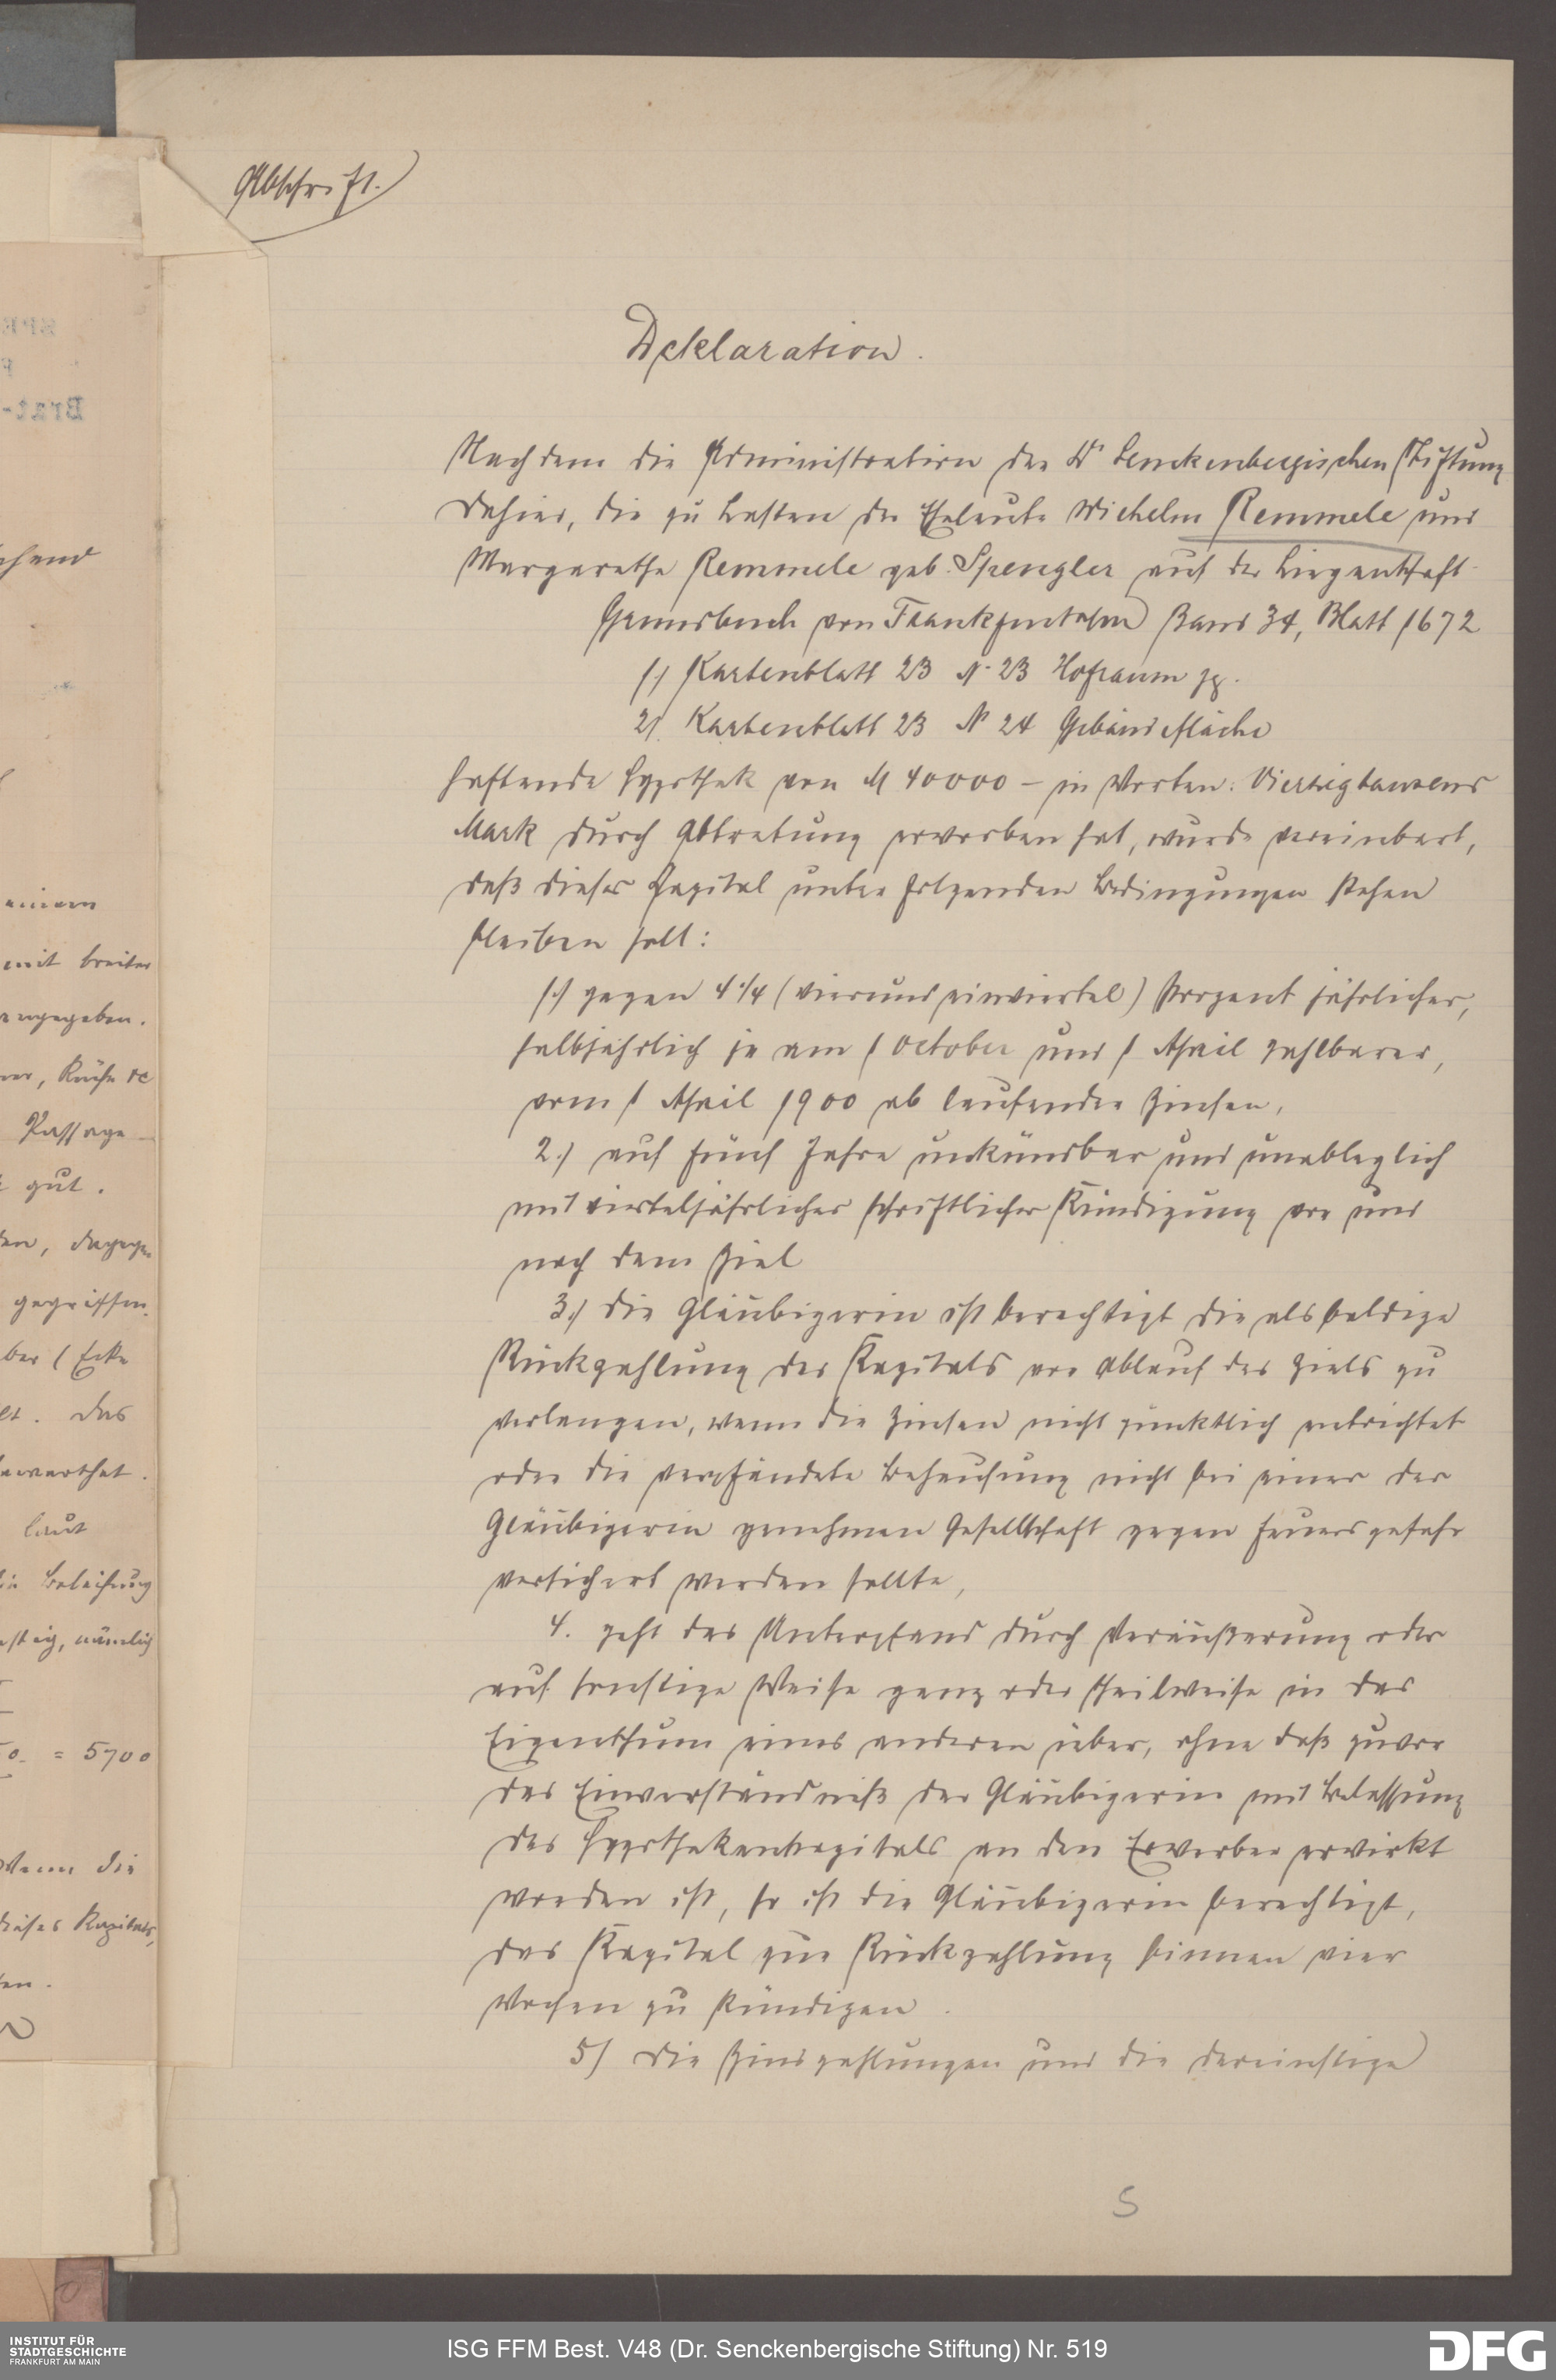 Abschrift.
Deklaration.
Nachdem die Administration der Dr Senckenbergischen Stiftung
dahier, die zu Lasten der Eheleute Wilhelm Remmele und
Margarethe Remmele geb. Spengler auf der Liegenschaft
Grundbuch von Frankfurt Band 34, Blatt 1672
1.) Kartenblatt 23 N. 23 Hofraum pp.
2) Kartenblatt 23 N 24 Gebäudefläche
haftende Hypothek von M 40000 – in Worten: Vierzigtausend
Mark durch Abtretung erworben hat, wurde vereinbart,
daß dieses Capital unter folgenden Bedingungen stehen
bleiben soll:
1.) gegen 4 1/4 (vierundeinviertel) Prozent jährlicher,
halbjährlich je am 1 October und 1 April zahlbarer,
vom 1 April 1900 ab laufender Zinsen,
2.) auf fünf Jahre unkündbar und unableglich
mit vierteljährlicher schriftlicher Kündigung vor und
nach dem Ziel
3.) die Gläubigerin ist berechtigt die alsbaldige
Rückzahlung des Kapitals vor Ablauf des Ziels zu
verlangen, wenn die Zinsen nicht pünktlich entrichtet
oder die verpfändete Behausung nicht bei einer der
Gläubigerin genehmen Gesellschaft gegen Feuersgefahr
versichert werden sollte,
4. geht das Unterpfand durch Veräußerung oder
auf sonstige Weise ganz oder theilweise in das
Eigenthum eines anderen über, ohne daß zuvor
das Einverständniß der Gläubigerin mit Belassung
des Hypothekenkapitals an den Erwerber erwirkt
worden ist, so ist die Gläubigerin berechtigt,
das Kapital zur Rückzahlung binnen vier
Wochen zu kündigen.
5) Die Zinszahlungen und die dereinstige
S
einem
mit breiter
angegeben.
, Küche etc
Passage
gut.
, dagegen
gegriffen.
(Ecke
. das
bewerthet.
laut
Beleihung
, nämlich
= 5700
Wenn die
dieses Kapitals,
INSTITUT FÜR
STADTGESCHICHTE
FRANKFURT AM MAIN
ISG FFM Best. V48 (Dr. Senckenbergische Stiftung) Nr. 519
DFG